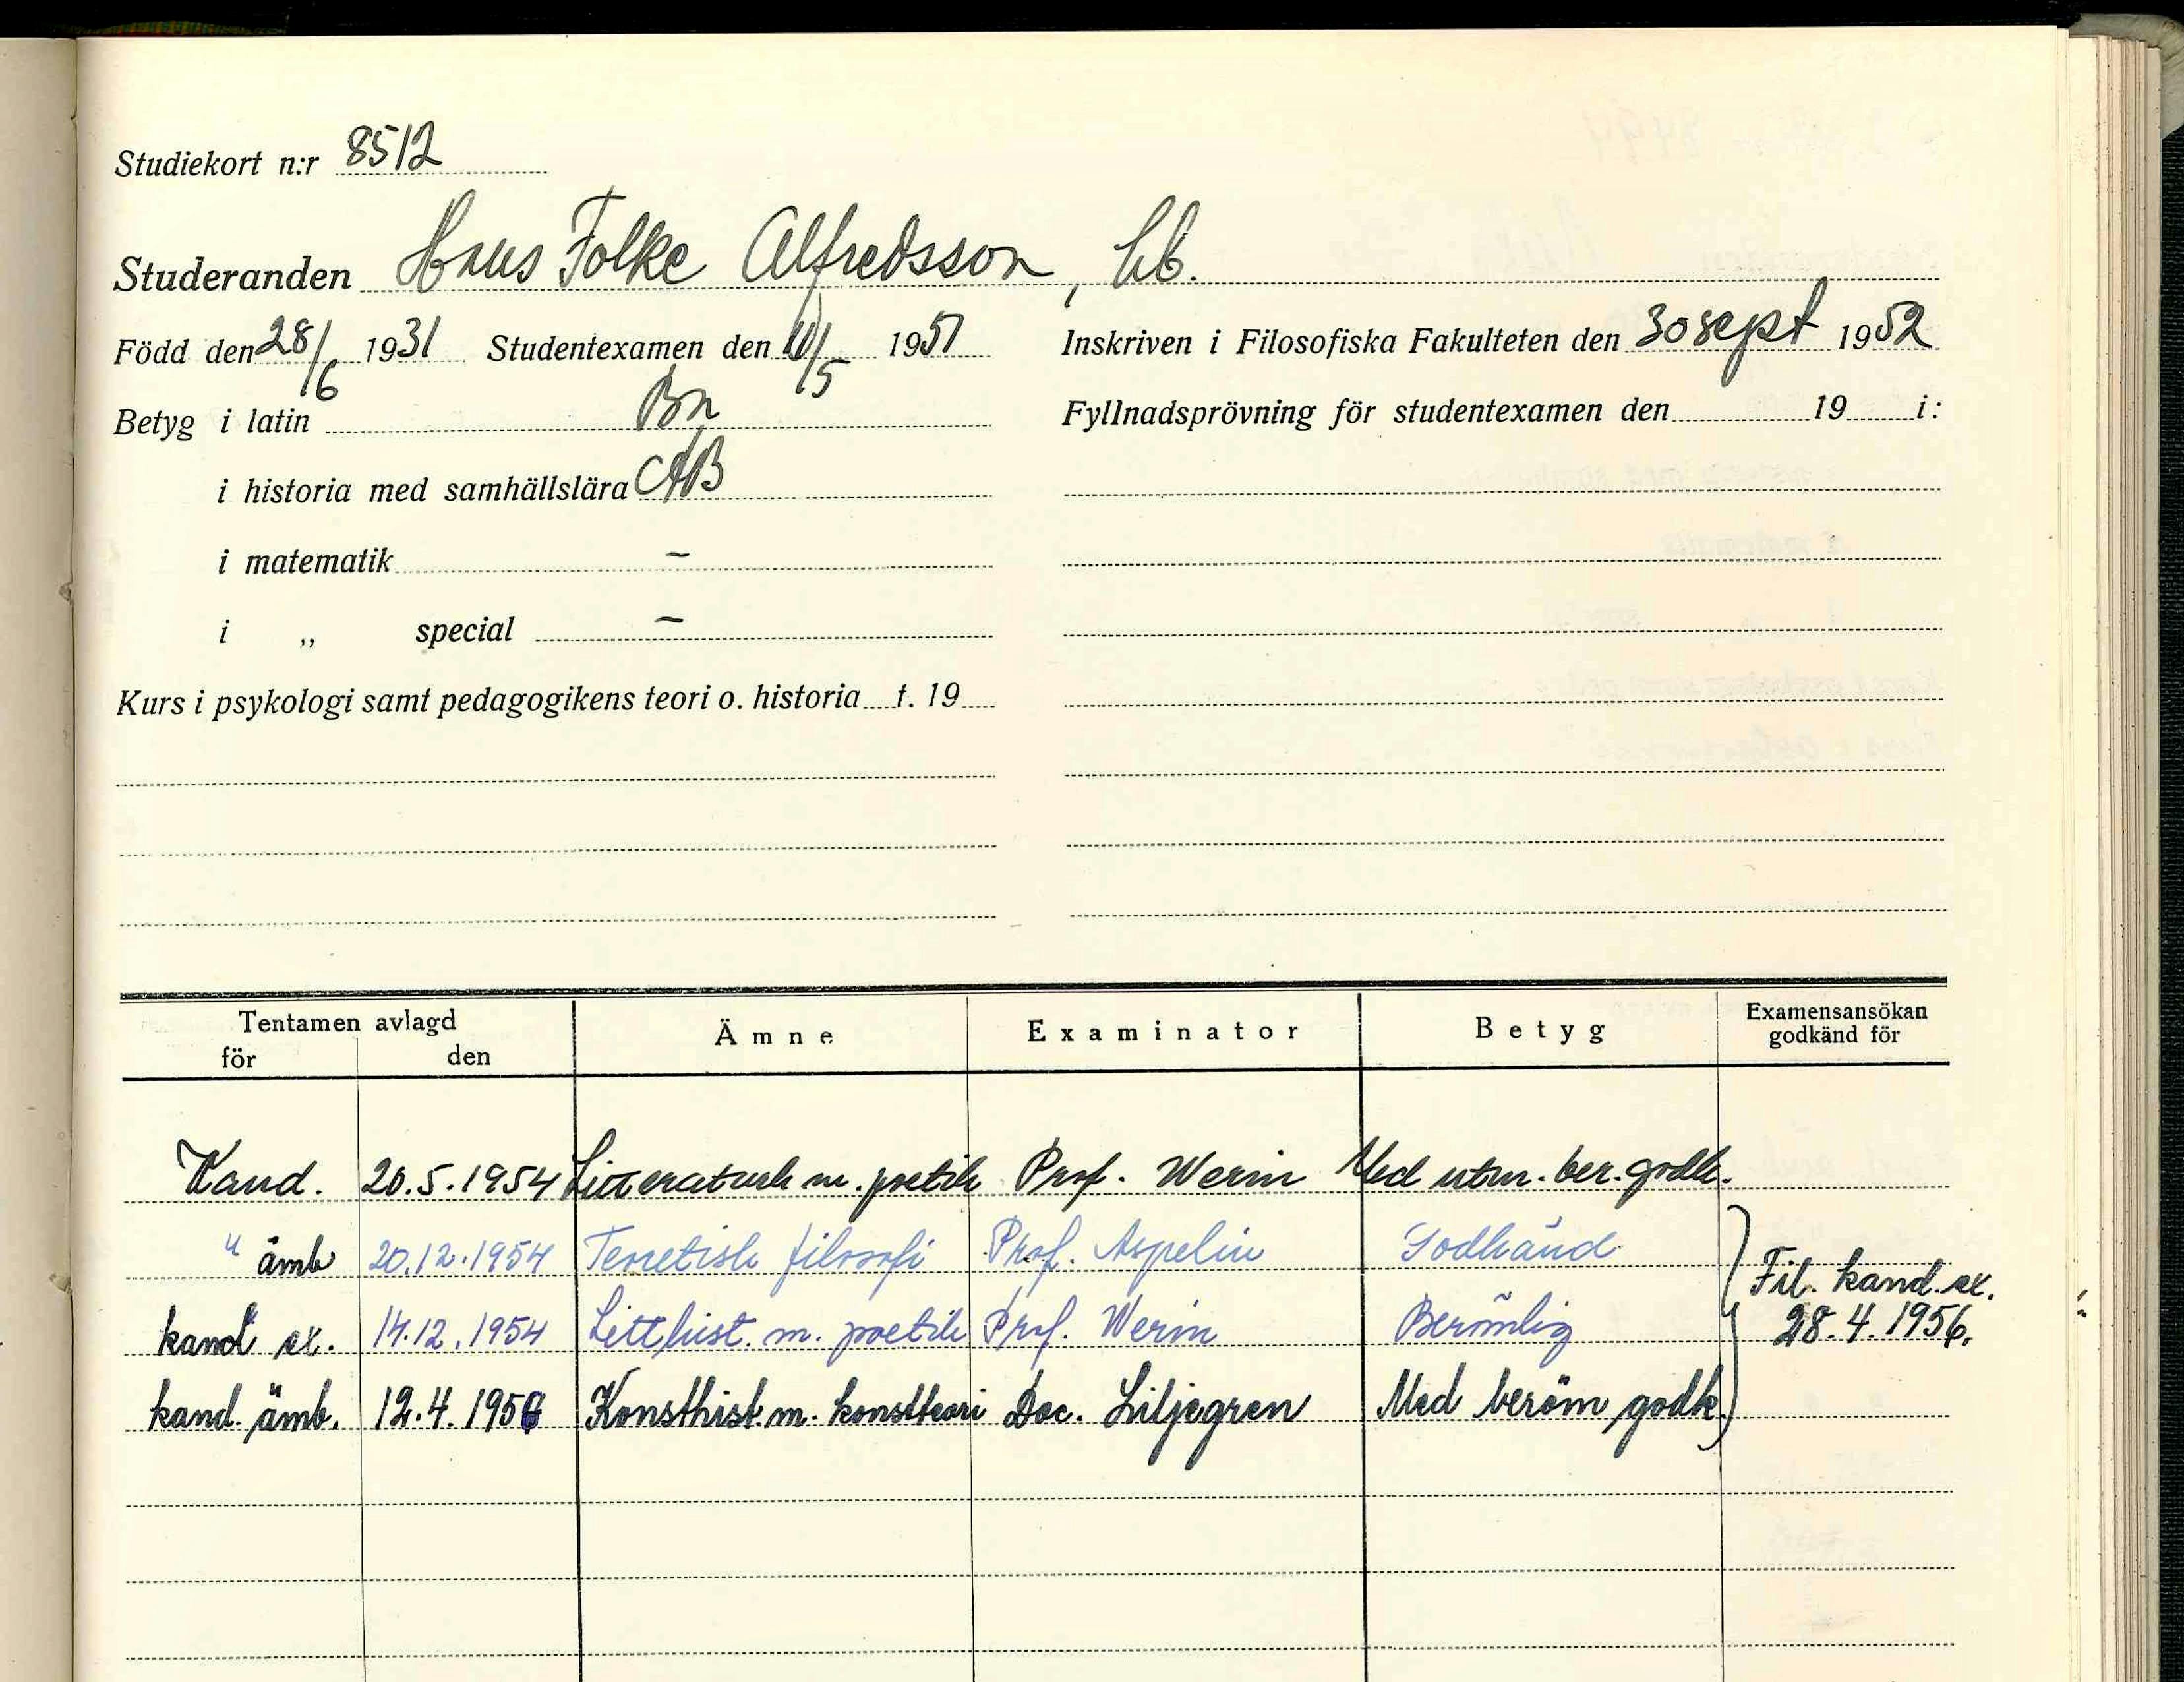 Studiekort n:r 8512
Studeranden Hans Folke Alfredsson, hb.
Född den 28/6 1931 Studentexamen den /5 1951 Inskriven i Filosofiska Fakulteten den 30 sept 1952
Betyg i latin Ba Fyllnadsprövning för studentexamen den 19 i:
i historia med samhällslära AB
i matematik –
i „ special –
Kurs i psykologi samt pedagogikens teori o. historia t. 19
Tentamen avlagd Ämne Examinator Betyg Examensansökan godkänd för
för den
Kand. 20.5.1954 Litteraturh m. poetik Prof. Werin Med utm. ber. godk.
" ämb 20.12.1954 Teoretisk filosofi Prof. Aspelin Godkänd
Fil. kand. ex.
kand ex. 14.12.1954 Litthist. m. poetik Prof. Werin Berömlig
28.4.1956.
kand. ämb. 12.4.1956 Konsthist. m. konstteori Doc. Liljegren Med beröm godk